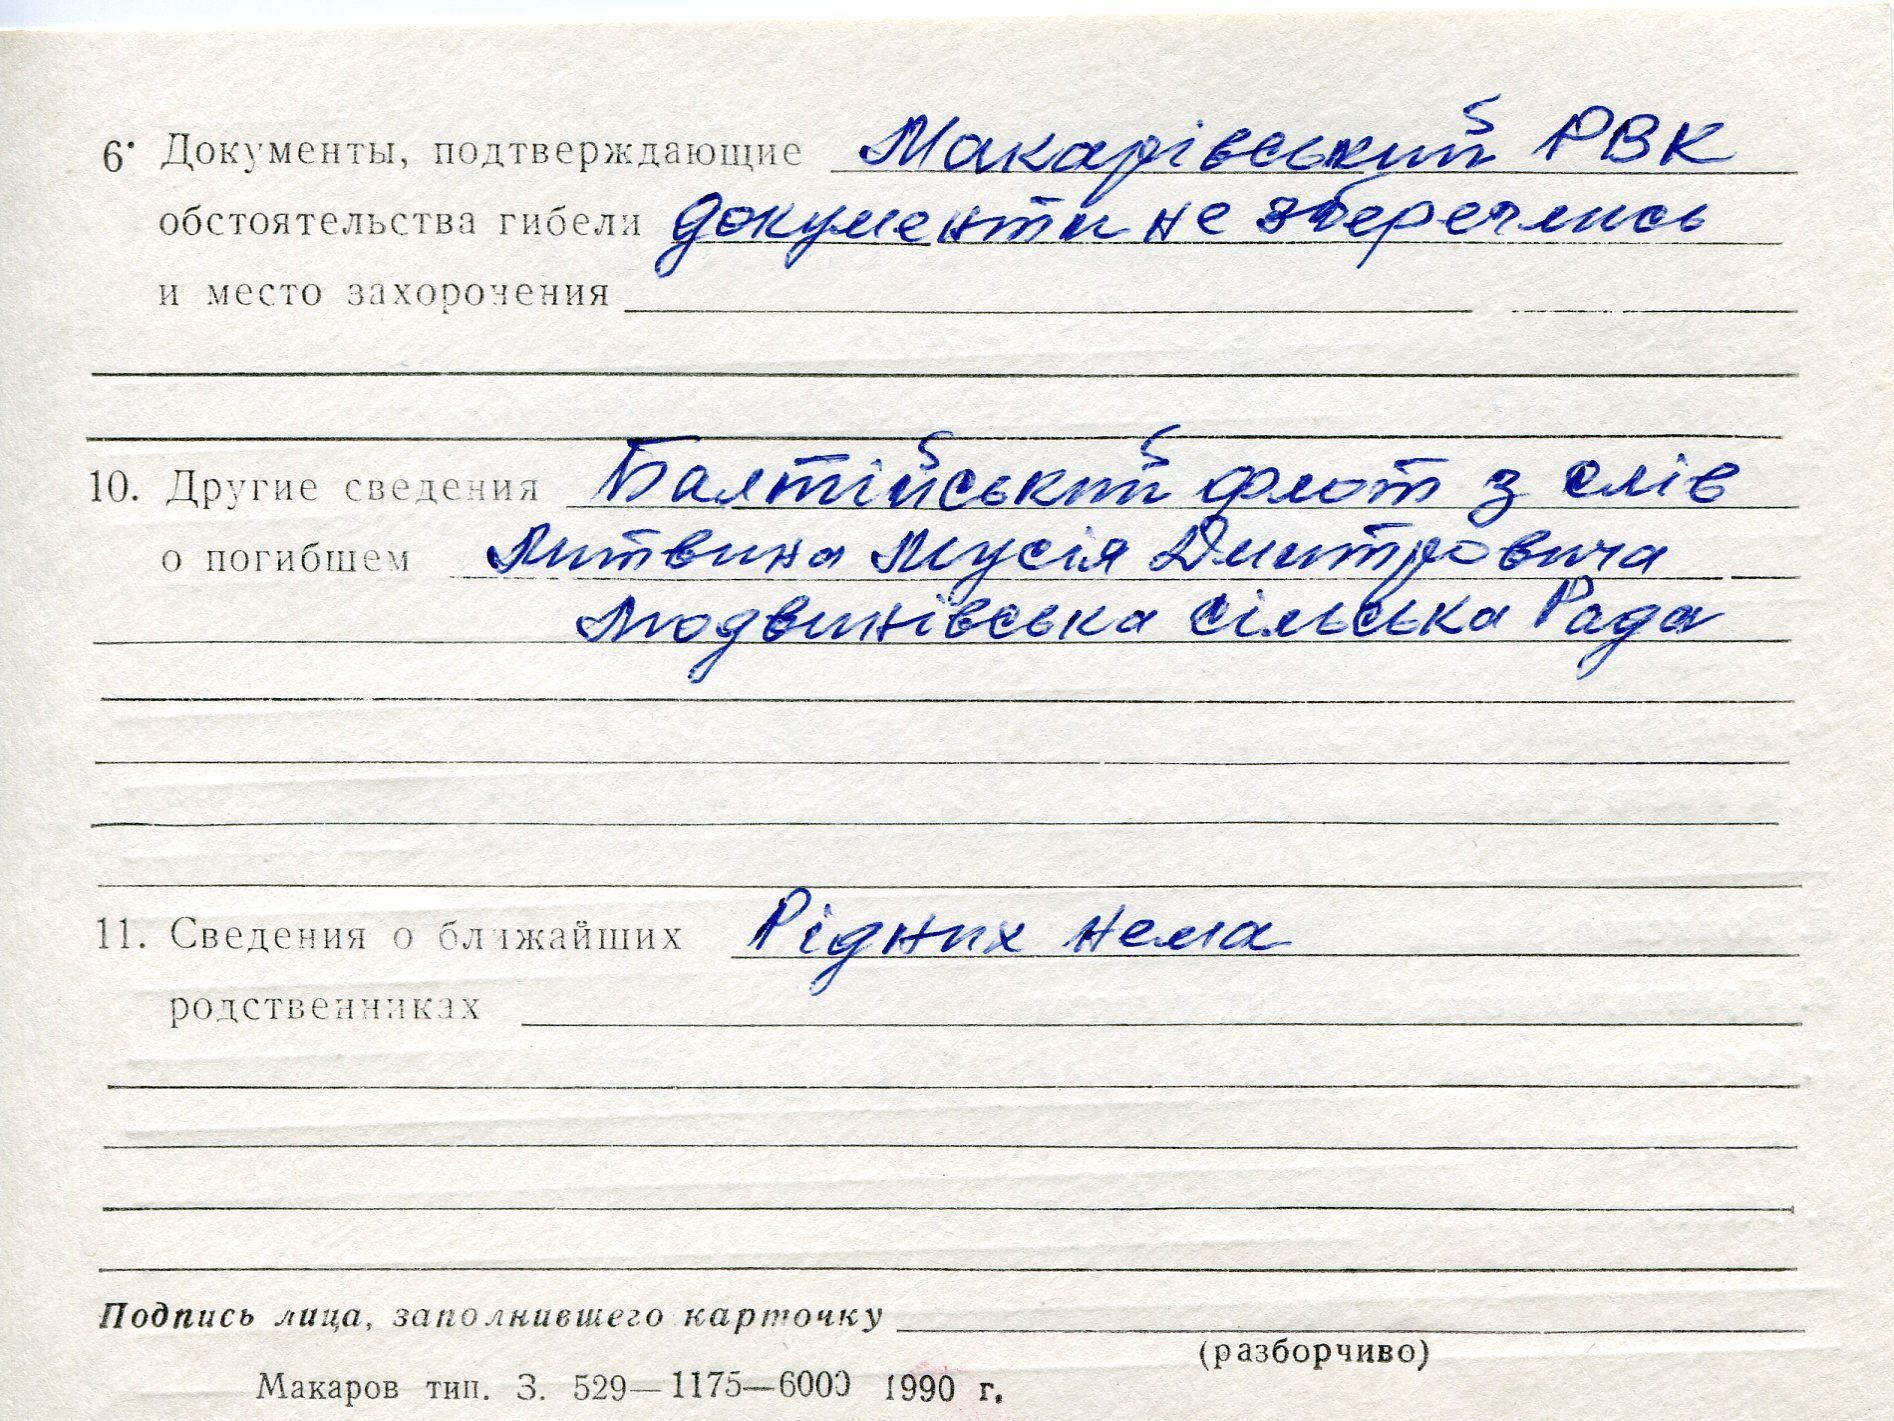 6. Документы, подтверждающие Макарівський РВК
обстоятельства гибели документи не збереглись
и место захоронения
10. Другие сведения Балтійський флот з слів
о погибшем Литвина Мусія Дмитровича
Людвинівська сільська Рада
11. Сведения о ближайших Рідних нема
родственниках
Подпись лица, заполнившего карточку
(разборчиво)
Макаров тип. З. 529—1175—6000 1990 г.